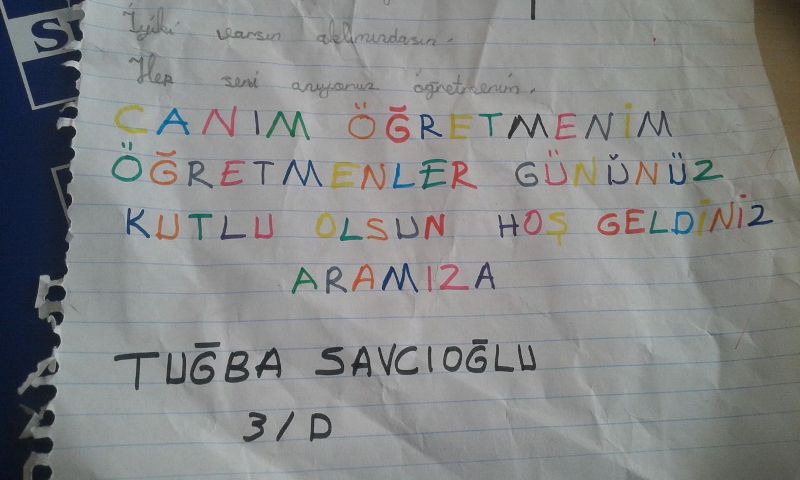 İyiki varsın aklımızdasın.
Hep seni arıyoruz öğretmenim.
CANIM ÖĞRETMENİM
ÖĞRETMENLER GÜNÜNÜZ
KUTLU OLSUN HOŞ GELDİNİZ
ARAMIZA
TUĞBA SAVCIOĞLU
3/D